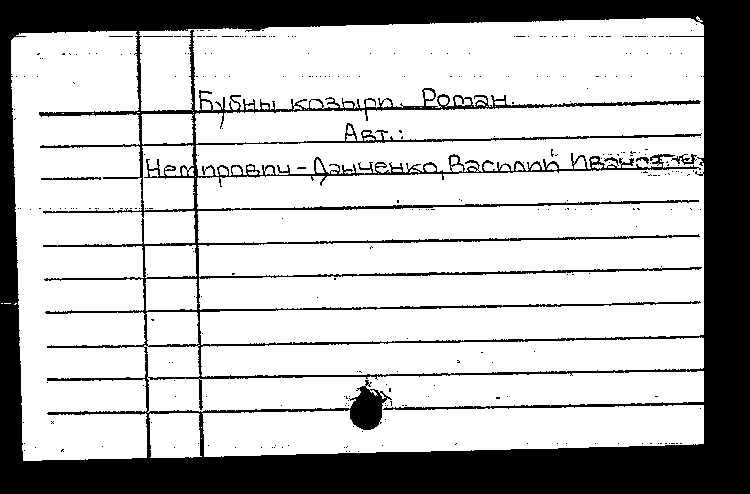 Бубны козыри. Роман.
Авт.:
Немирович-Данченко, Василий Иванович